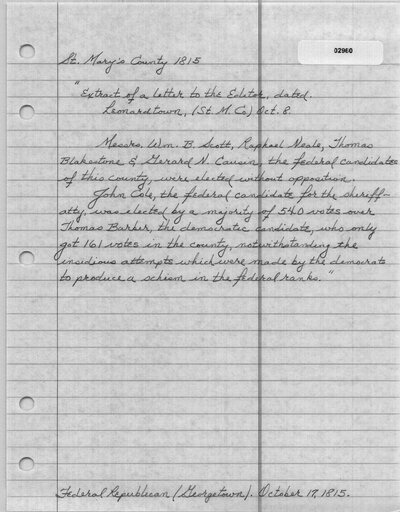 02960
St. Mary's County 1815
"Extract of a letter to the Editor, dated.
Leonardtown, (St. M. Co) Oct. 8.
Messrs. Wm. B. Scott, Raphael Neale, Thomas
Blakestone & Gerard N. Causin, the federal candidates
of this county, were elected without opposition.
John Cole, the federal candidate for the sheriff-
atty, was elected by a majority of 540 votes over
Thomas Barber, the democratic candidate, who only
got 161 votes in the county, noturthstanding the
insidious attempts which were made by the democrats
to produce a schism in the federal ranks."
Federal Republican (Georgetown). October 17, 1815.